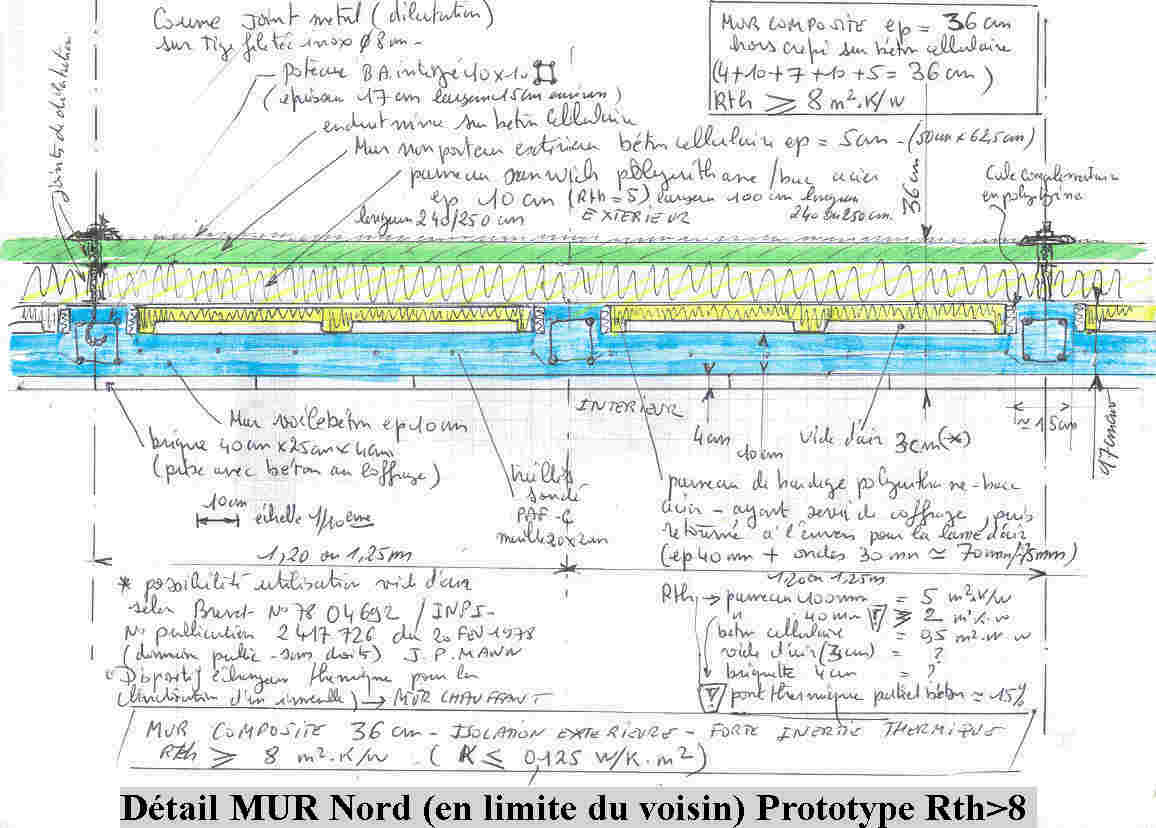 joint metal (dilatation)
sur tige filetée inox Ø 8 m -
poteau B.A. intégré 10 x 10
(épaisseur 17 cm largeur 15 cm environ)
enduit mince sur béton cellulaire
Mur non porteur extérieur béton cellulaire ep = 5cm - (50cm x 62,5cm)
panneau sandwich polyuréthane / bac acier
ep 10 cm (Rth = 5) largeur 100 cm longueur
longueur 240/250 cm
EXTERIEUR
240 ou 250 cm.
MUR COMPOSITE ep = 36 cm
hors crépi sur béton cellulaire
(4+10+7+10+5 = 36 cm)
Rth ⩾ 8 m².K/W
joints de dilatation
36 cm
Cale complémentaire
en polystyrène
INTERIEUR
Mur voile béton ep 10 cm
brique 40cm x 25cm x 4cm
(pose avec béton au coffrage)
10cm
échelle 1/10ème
1,20 ou 1,25m
treillis
soudé
PAF-C
maille 20 x 20cm
4cm
10cm
vide d'air 3cm (*)
≃ 15cm
17cm
panneau de bardage polyuréthane - bac
acier - ayant servi de coffrage, puis
retourné à l'envers pour la lame d'air
(ep 40 mm + ondes 30 mm ≃ 70mm/75mm)
1,20 ou 1,25m
* possibilité utilisation vide d'air
selon Brevet N° 78 04692 / INPI -
N° publication 2 417 726 du 20 FEV 1978
(domaine public - sans droits) J.P. MANN
Dispositif échangeur thermique pour la
climatisation d'un immeuble) → MUR CHAUFFANT
Rth → panneau 100mm = 5 m².K/W
" 40 mm ⩾ 2 m².K.W
béton cellulaire = 0,5 m².W
vide d'air (3cm) = ?
briquette 4 cm = ?
pont thermique partiel béton ≃ 15%
MUR COMPOSITE 36 cm - ISOLATION EXTERIEURE - FORTE INERTIE THERMIQUE
Rth ⩾ 8 m².K/W . ( K ⩽ 0,125 W/K.m²)
Détail MUR Nord (en limite du voisin) Prototype Rth>8